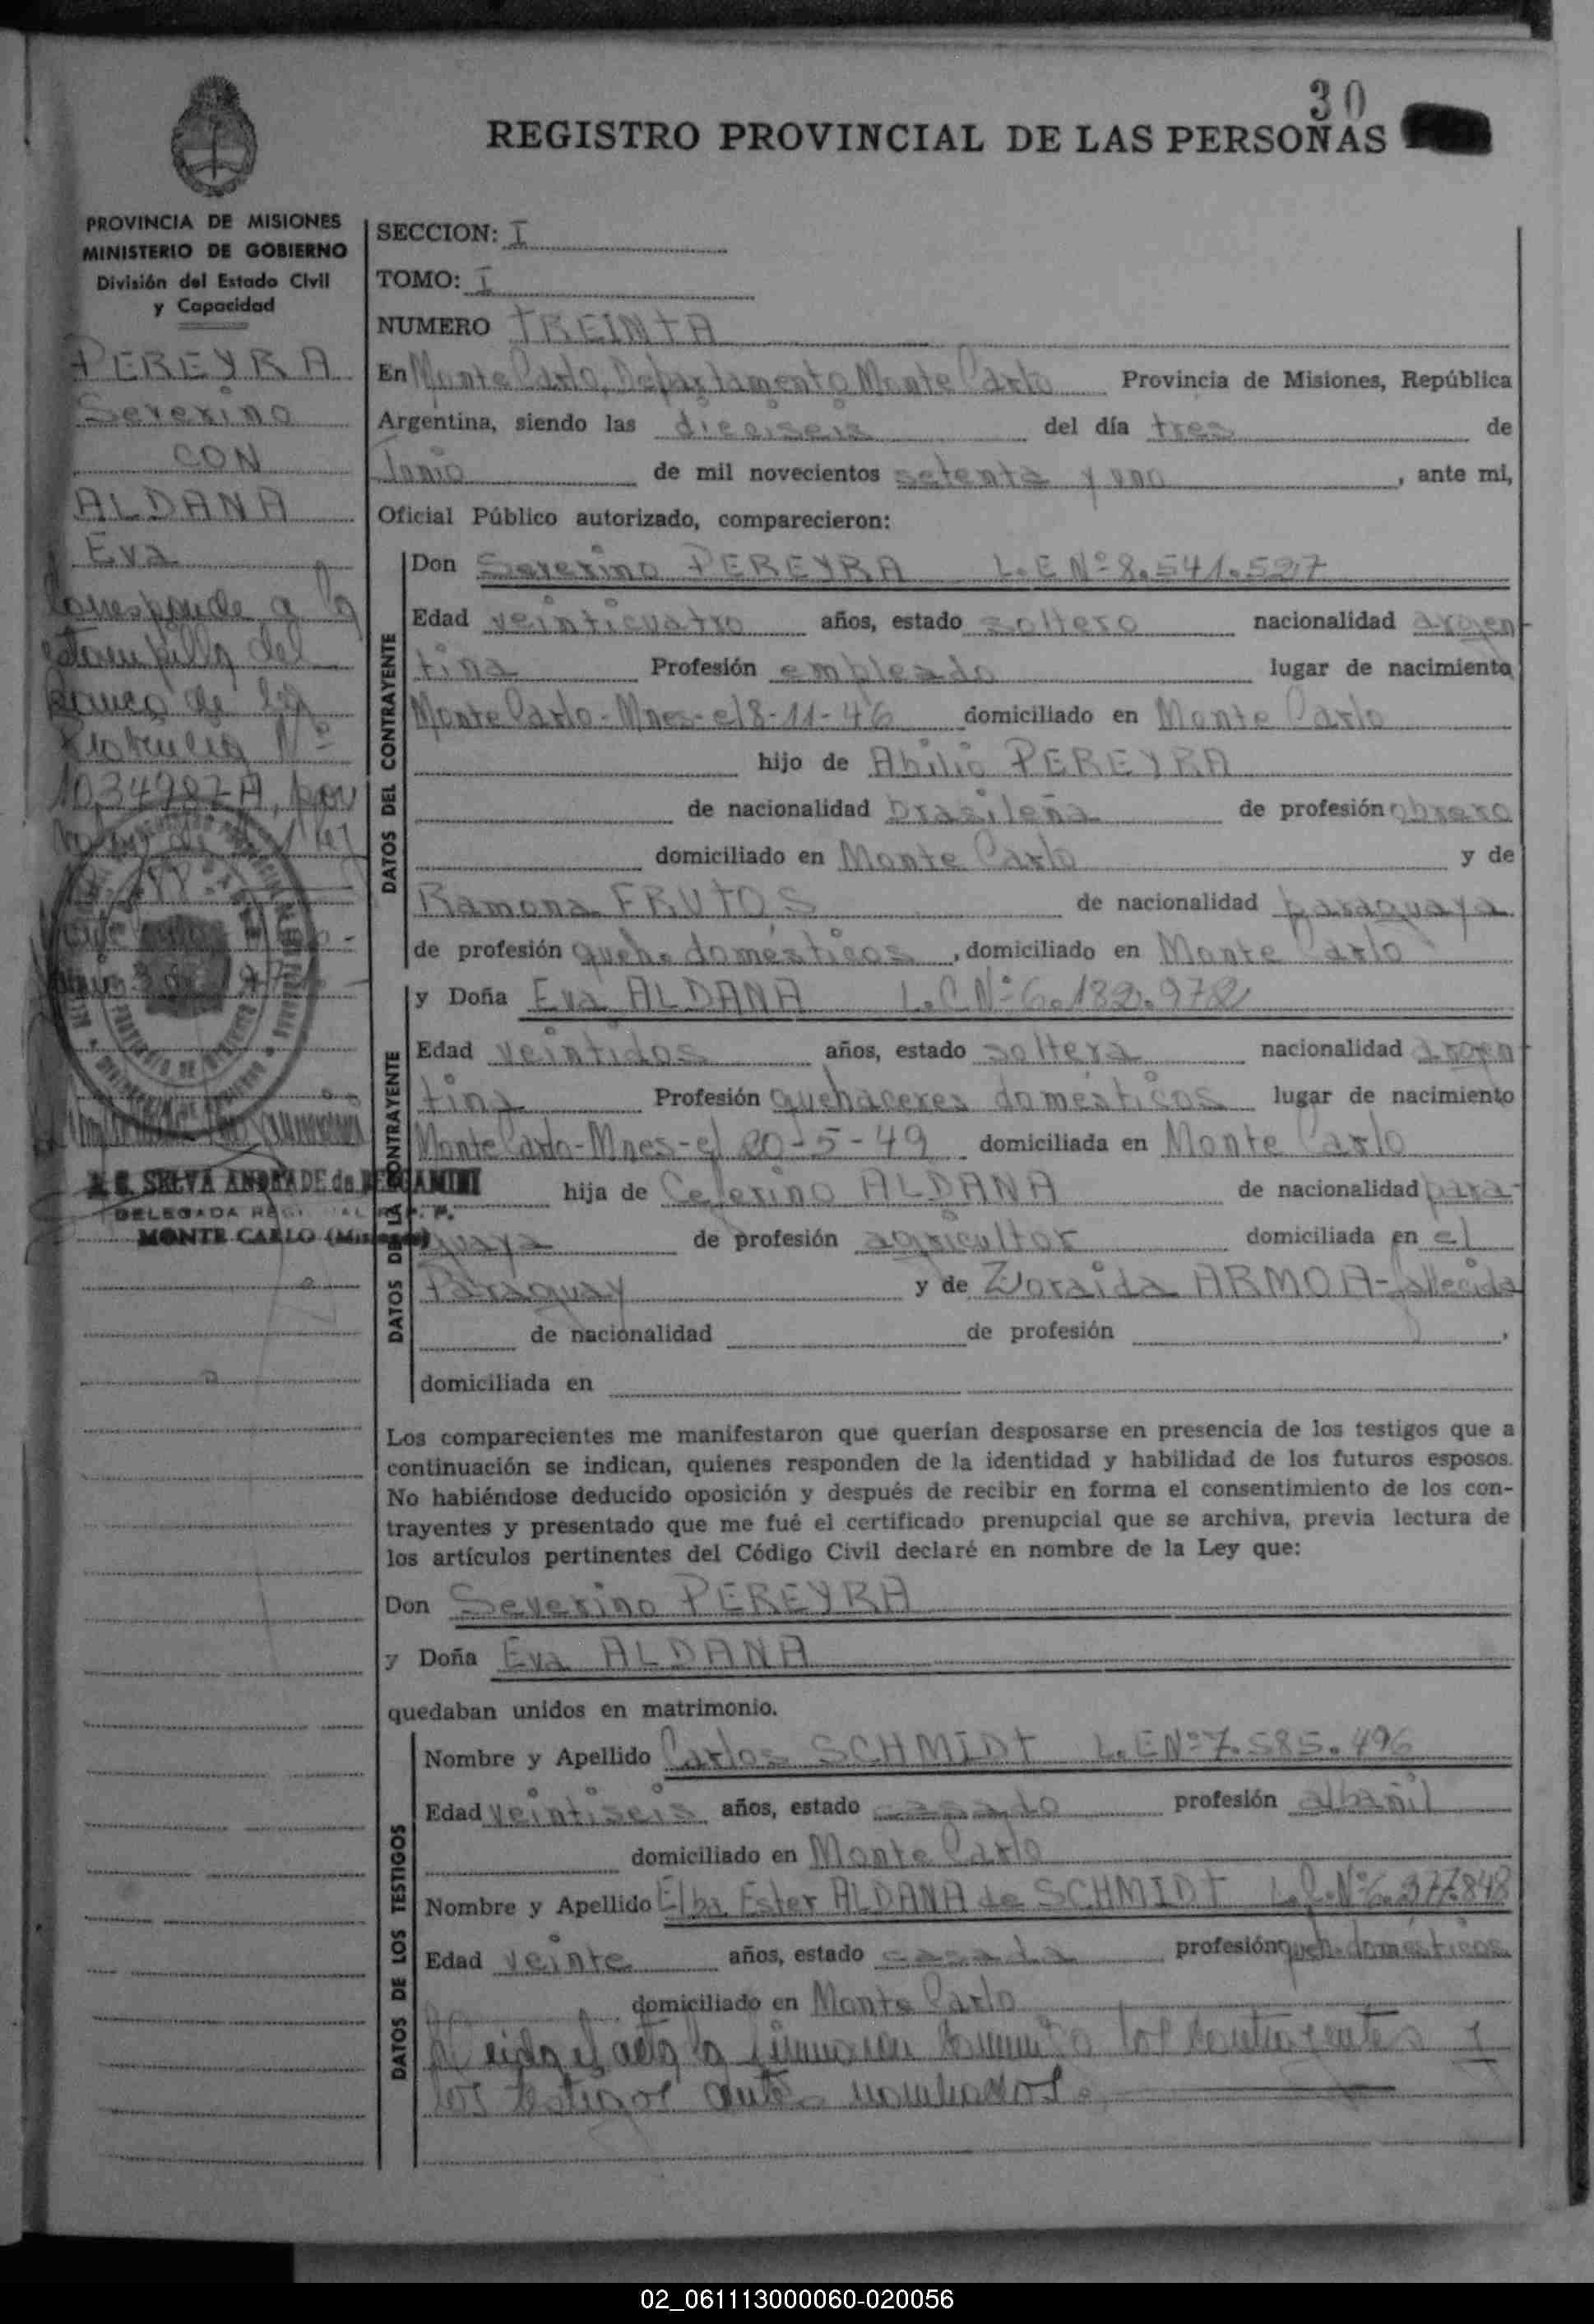 30
REGISTRO PROVINCIAL DE LAS PERSONAS
PROVINCIA DE MISIONES
MINISTERIO DE GOBIERNO
División del Estado Civil
y Capacidad
PEREYRA
Severino
CON
ALDANA
Eva
Corresponde a la
estampilla del
Banco de la
Provincia Nº
1034987A, por
valor de
M. S. SELVA ANDRADE de BERGAMINI
DELEGADA REGIONAL R. P. P.
MONTE CARLO (Misiones)
SECCION: I
TOMO: I
NUMERO TREINTA
En Monte Carlo, Departamento Monte Carlo Provincia de Misiones, República
Argentina, siendo las dieciseis del día tres de
Junio de mil novecientos setenta y uno, ante mi,
Oficial Público autorizado, comparecieron:
DATOS DEL CONTRAYENTE
Don Severino PEREYRA L.E Nº 8.541.527
Edad veinticuatro años, estado soltero nacionalidad argen
tina Profesión empleado lugar de nacimiento
Monte Carlo-Mnes-el 8-11-46 domiciliado en Monte Carlo
hijo de Abilio PEREYRA
de nacionalidad brasileña de profesión obrero
domiciliado en Monte Carlo y de
Ramona FRUTOS de nacionalidad paraguaya
de profesión queh. domésticos, domiciliado en Monte Carlo
DATOS DE LA CONTRAYENTE
y Doña Eva ALDANA L.C Nº 6.132.972
Edad veintidos años, estado soltera nacionalidad argen
tina Profesión quehaceres domésticos lugar de nacimiento
Monte Carlo-Mnes-el 20-5-49 domiciliada en Monte Carlo
hija de Ceferino ALDANA de nacionalidad para-
guaya de profesión agricultor domiciliada en el
Paraguay y de Zoraida ARMOA-fallecida
de nacionalidad de profesión ,
domiciliada en
Los comparecientes me manifestaron que querían desposarse en presencia de los testigos que a
continuación se indican, quienes responden de la identidad y habilidad de los futuros esposos.
No habiéndose deducido oposición y después de recibir en forma el consentimiento de los con-
trayentes y presentado que me fué el certificado prenupcial que se archiva, previa lectura de
los artículos pertinentes del Código Civil declaré en nombre de la Ley que:
Don Severino PEREYRA
y Doña Eva ALDANA
quedaban unidos en matrimonio.
DATOS DE LOS TESTIGOS
Nombre y Apellido Carlos SCHMIDT L.E Nº 7.585.496
Edad veintiseis años, estado casado profesión albañil
domiciliado en Monte Carlo
Nombre y Apellido Elba Ester ALDANA de SCHMIDT L.C. Nº 6.277.848
Edad veinte años, estado casada profesión queh. domésticos
domiciliado en Monte Carlo
Leida el acta la firmaron conmigo los contrayentes y
los testigos antes nombrados.
02_061113000060-020056